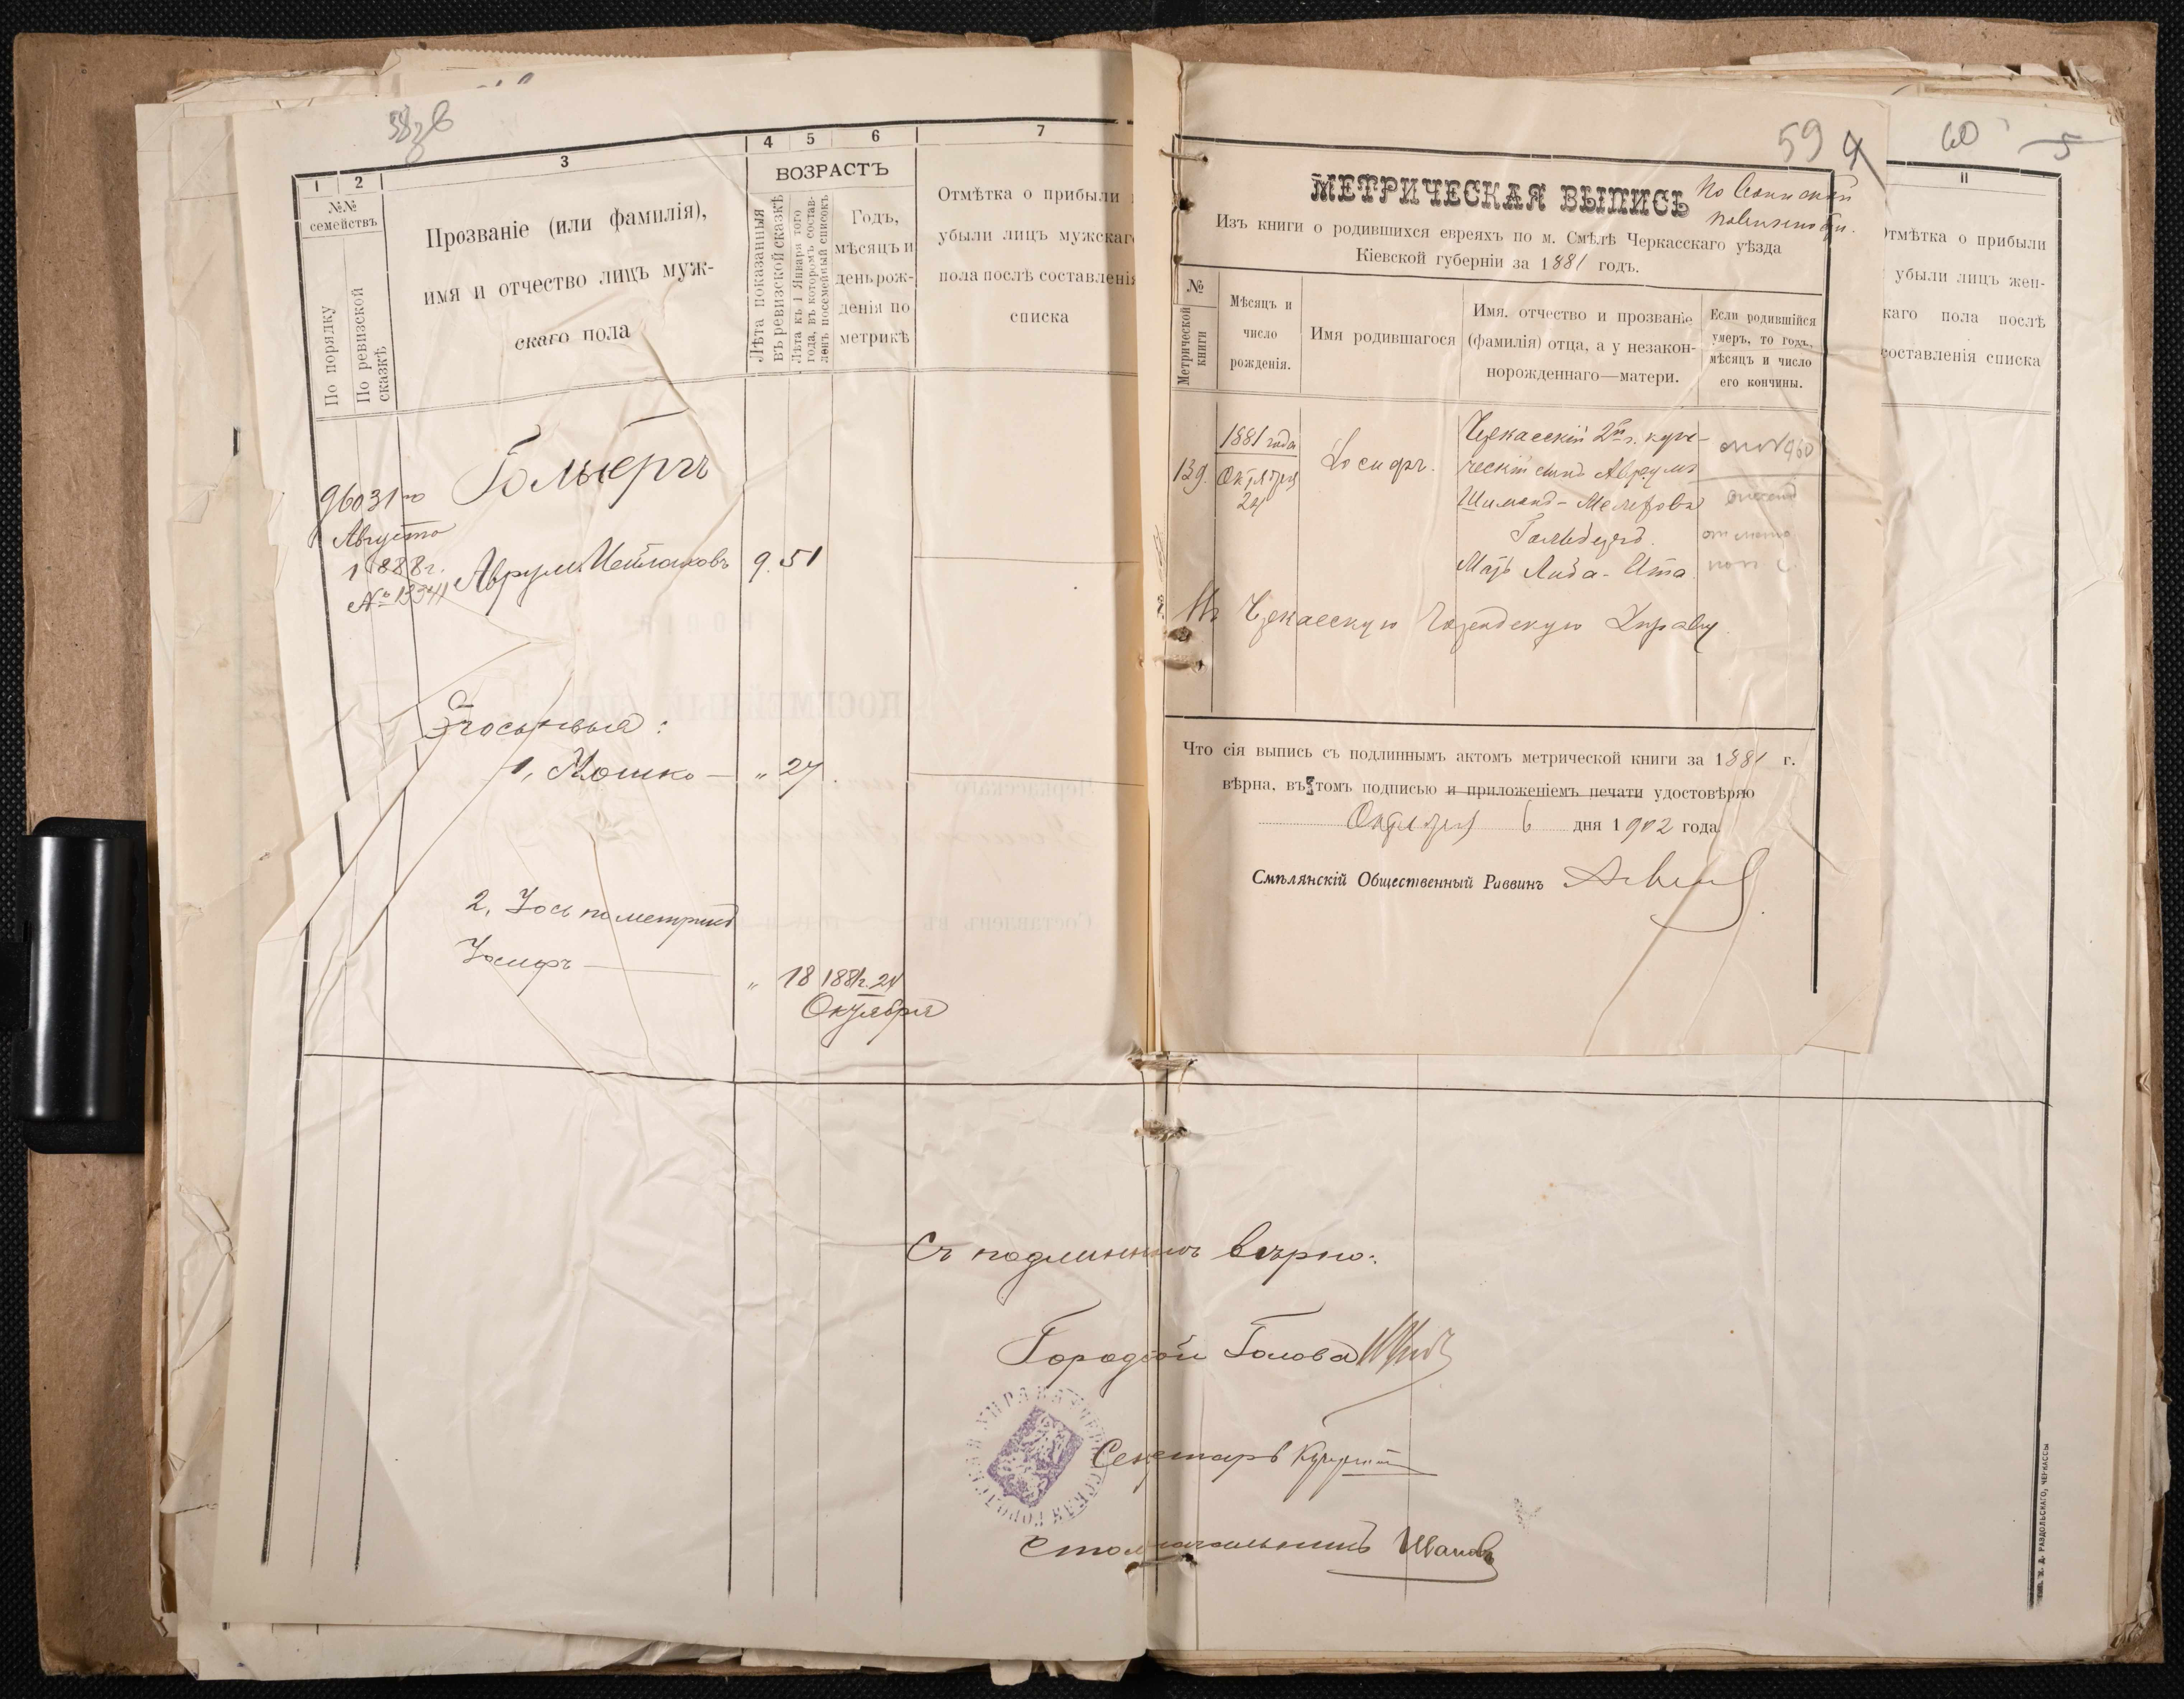 1
2
3
4
5
6
7
№№
семействъ
По порядку
По ревизской
сказкѣ
Прозваніе (или фамилія),
имя и отчество лицъ муж-
скаго пола
ВОЗРАСТЪ
Лѣта показанныя
въ ревизской сказкѣ
Лѣта къ 1 Января того
года, въ которомъ состав-
ленъ посемейный списокъ
Годъ,
мѣсяцъ и
день рож-
денія по
метрикѣ
Отмѣтка о прибыли
убыли лицъ мужскаго
пола послѣ составленія
списка
960 31го
Августа
1888 г.
№ 13341
Аврумъ
9. 51
Его сыновья:
1, Мошко — „ 27
2, Іось по метрикѣ
Іосифъ — „ 18 1881 г. 24
Октября
59
МЕТРИЧЕСКАЯ ВЫПИСЬ
По воинской
повинности.
Изъ книги о родившихся евреяхъ по м. Смѣлѣ Черкасскаго уѣзда
Кіевской губерніи за 1881 годъ.
№
Метрической
книги
Мѣсяцъ и
число
рожденія.
Имя родившагося
Имя, отчество и прозваніе
(фамилія) отца, а у незакон-
норожденнаго—матери.
Если родившійся
умеръ, то годъ,
мѣсяцъ и число
его кончины.
139.
1881 года
Октября
24
Іосифъ.
Черкасскій 2й г. купе-
ческій сынъ Аврумъ
Шимонъ-
Гольбергъ.
Мать Ита.
Въ Черкасскую Городскую Управу.
Что сія выпись съ подлиннымъ актомъ метрической книги за 1881 г.
вѣрна, въ томъ подписью и приложеніемъ печати удостовѣряю
Октября 6 дня 1902 года
Смѣлянскій Общественный Раввинъ
60
5
11
Отмѣтка о прибыли
убыли лицъ жен-
скаго пола послѣ
составленія списка
Съ подлиннымъ вѣрно:
Городской Голова
Секретарь
Столоначальникъ
ТИП. И. Д. РАЗДОЛЬСКАГО, ЧЕРКАССЫ